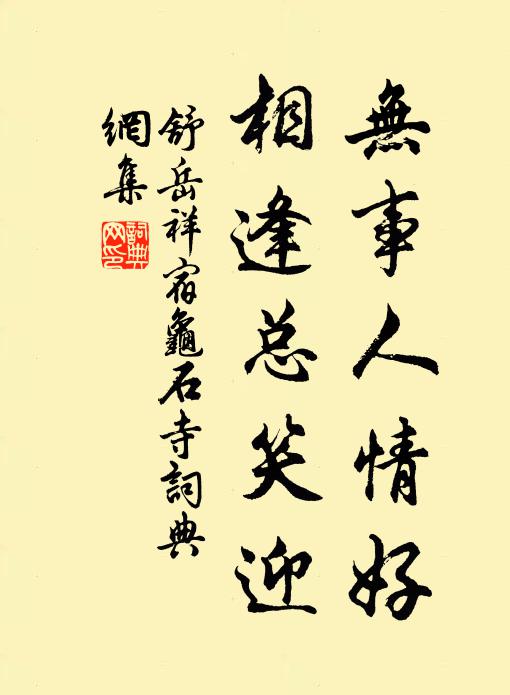 無事人情好
相逢总笑迎
舒岳祥宿龜石寺詞典
網集
詞典網印